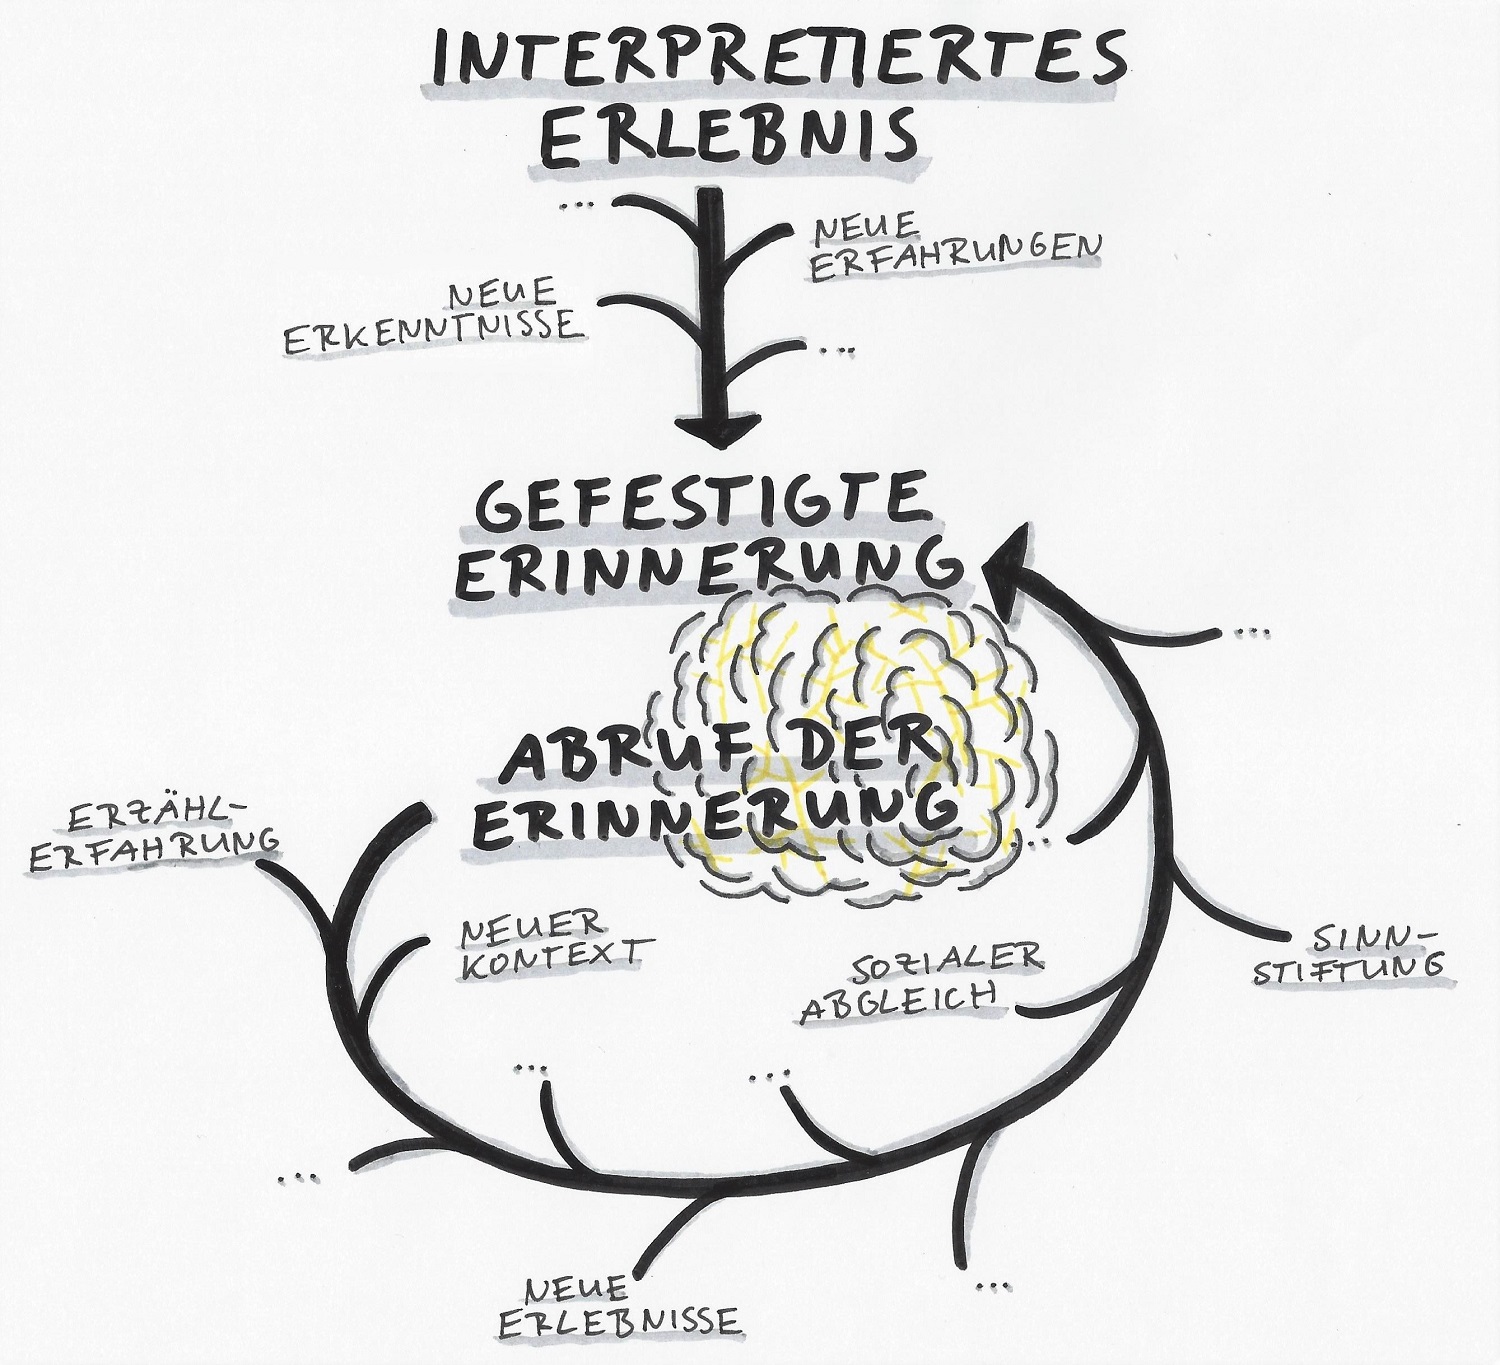 INTERPRETIERTES
ERLEBNIS
...
NEUE
ERFAHRUNGEN
NEUE
ERKENNTNISSE
...
GEFESTIGTE
ERINNERUNG
...
ABRUF DER
ERINNERUNG
ERZÄHL-
ERFAHRUNG
...
NEUER
KONTEXT
SOZIALER
ABGLEICH
SINN-
STIFTUNG
...
...
...
NEUE
ERLEBNISSE
...